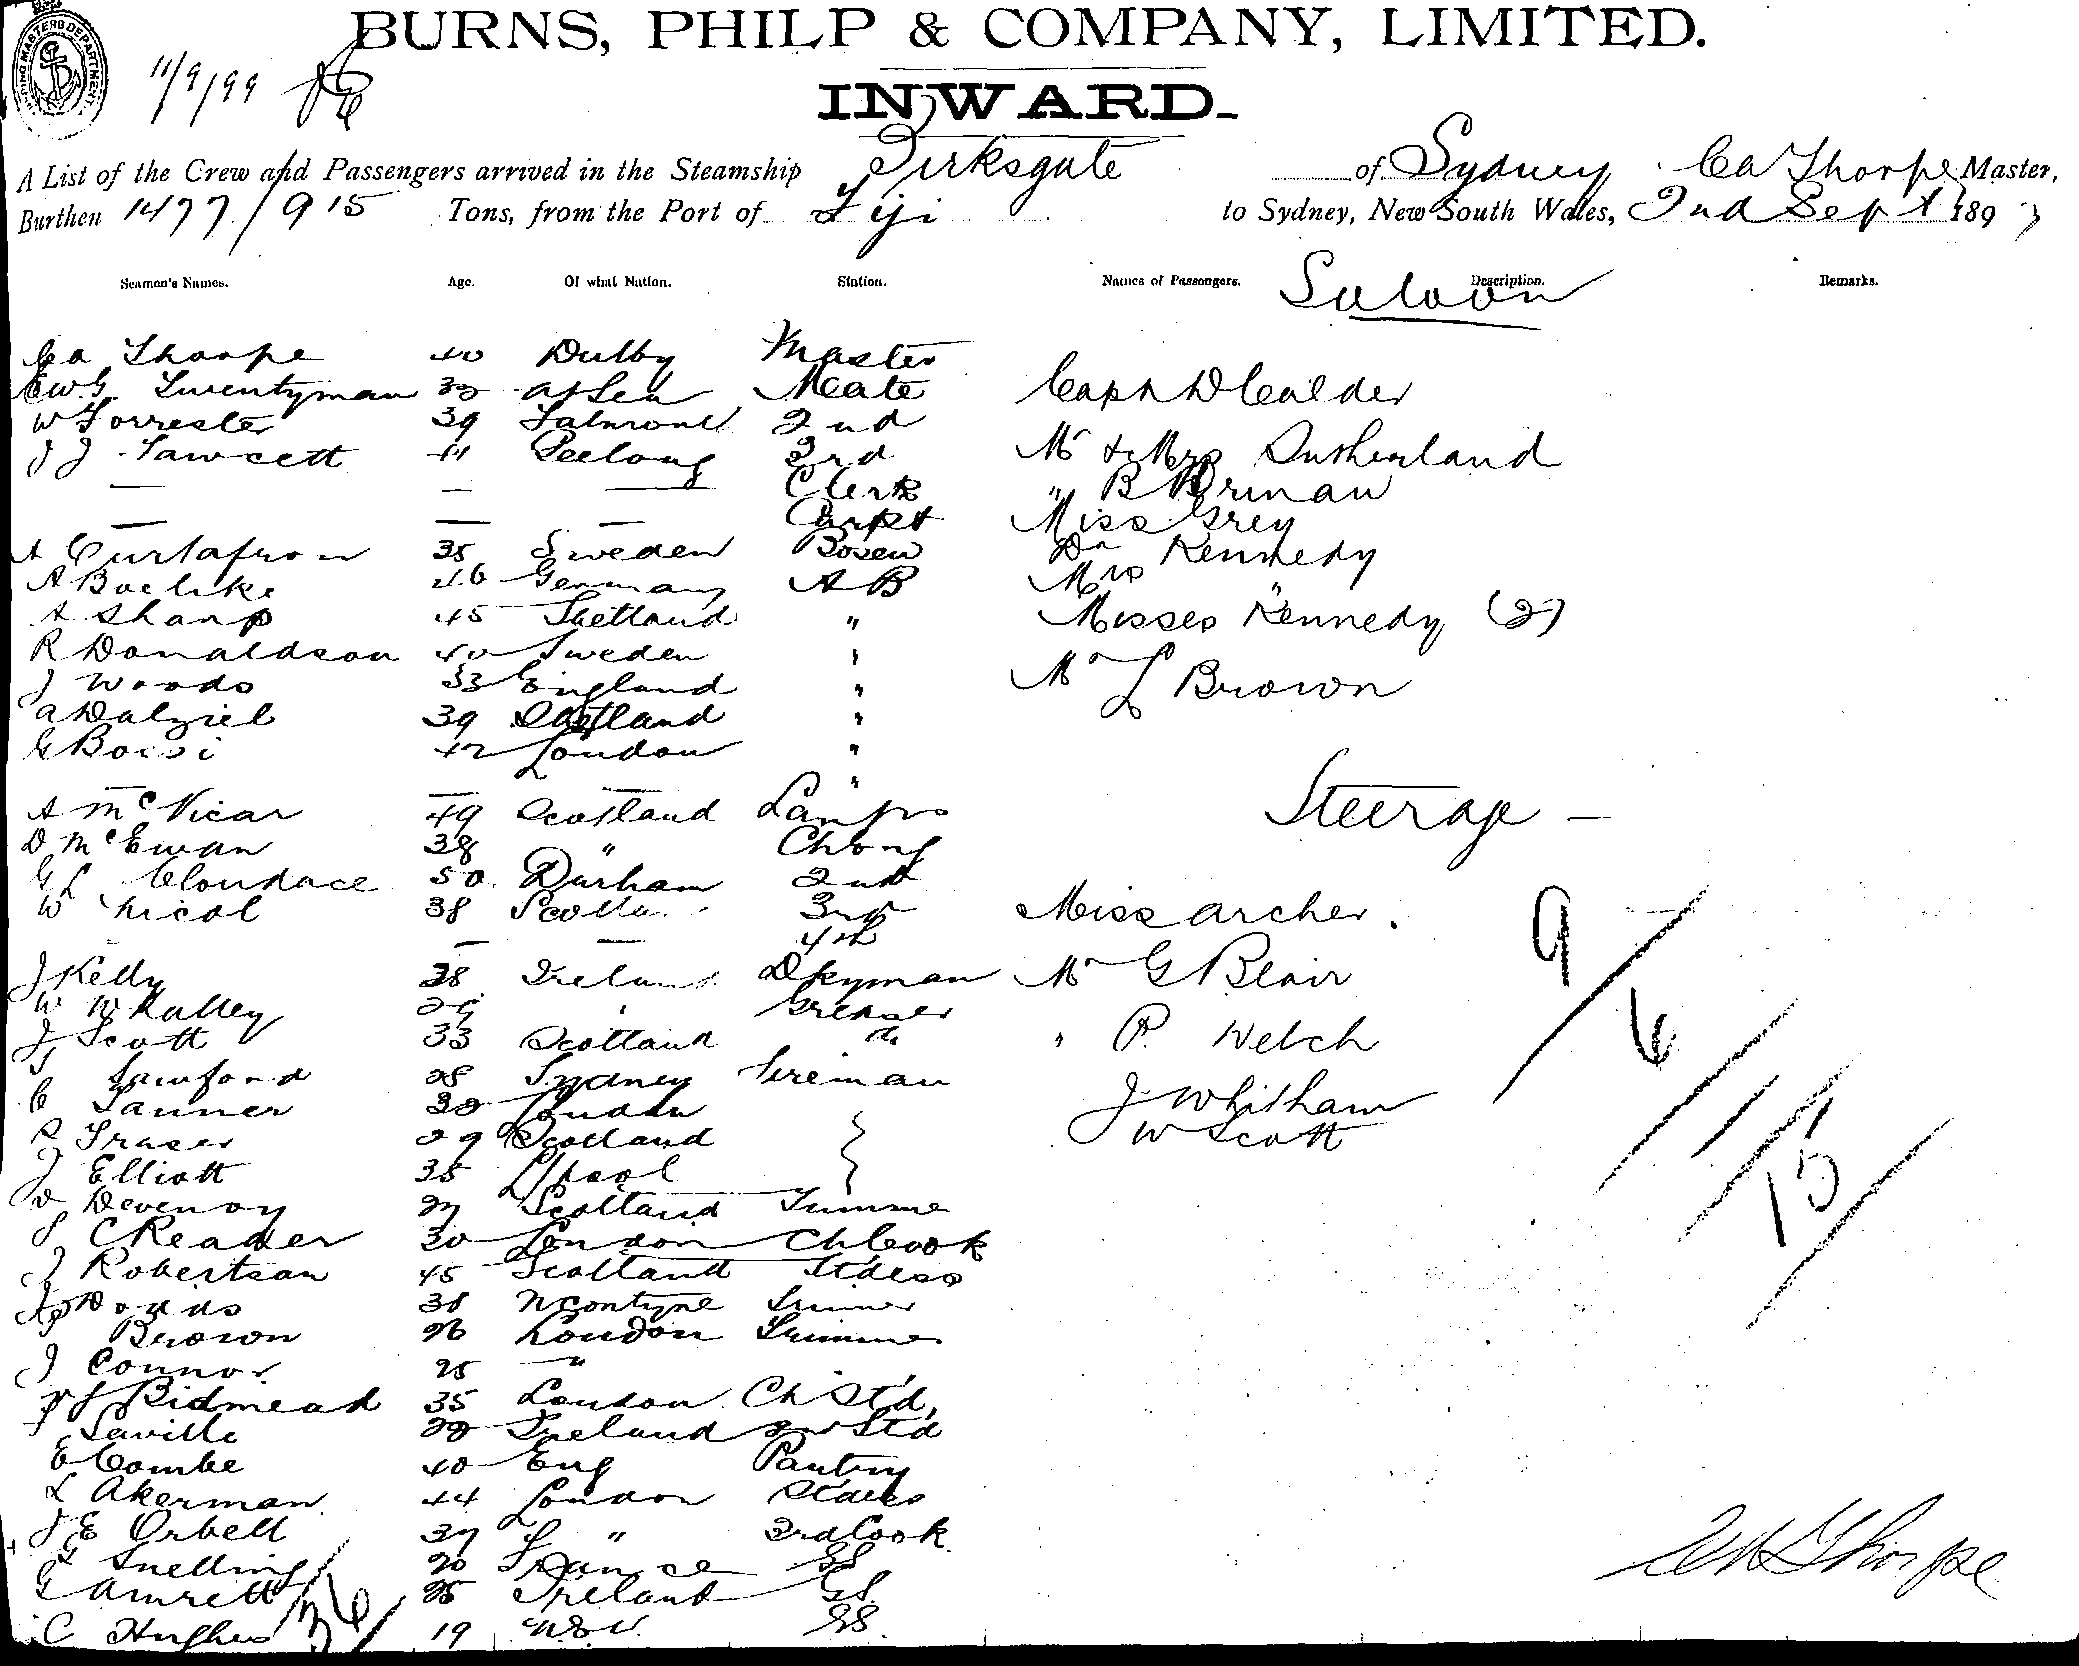 BURNS, PHILP & COMPANY, LIMITED.
11/9/99
INWARD.
A List of the Crew and Passengers arrived in the Steamship Birksgate of Sydney Ca Thorpe Master,
Burthen 1477/915 Tons, from the Port of Fiji to Sydney, New South Wales, 2nd Sept 1897
Seamen's Names. Age. Of what Nation. Station. Names of Passengers. Description. Remarks.
Saloon
Ca Thorpe 40 Dulby Master
Twentyman 30 at Sea Mate Capn D Calder
W Forrester 39 Falmouth 2nd
J J Fawcett 41 Geelong 3rd Mr & Mrs Sutherland
— — — Clerk " B
— — — Carpt Miss Grey
A 35 Sweden Bosen Dr Kennedy
A 46 Germany A B Mrs "
A Sharp 45 Shetland " Misses Kennedy (2)
R Donaldson 40 Sweden "
J Woods 33 England " Mr L Brown
A Dalziel 39 Scotland "
G 42 London "
— — — "
A McVicar 49 Scotland Lamps
Steerage —
D McEwan 38 " Ch Eng
G L 50 Durham 2nd
W Nicol 38 3rd Miss Archer.
— — 4th
J Kelly 38 Ireland Dkyman Mr G Blair
W Whalley " Greaser
J Scott 33 Scotland do " P. Welch
28 Sydney Fireman
C Tanner 30 London J Whitham
Fraser 29 Scotland W Scott
J Elliott 35 L'pool
Devenoy Scotland
C Reader 30 London Ch Cook
J Robertson 45 Scotland Stdess
38 NConTyne
Brown 26 London Trimmer
J Connor 25 "
Bidmead 35 London Ch Std,
Saville Ireland 2nd Std
E Combe 40 Eng Pantry
L Akerman 44 London
J E Orbell 37 " 3rd Cook
Snelling 20 France GS
G 25 Ireland GS
C Hughes 19 NSW. GS.
9
6
15
36